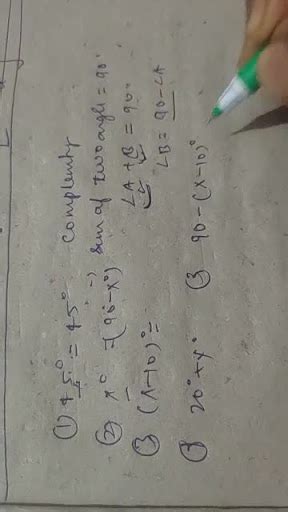 ① 45° = 45° complemty
② x° = (90-x°) ⇒ Sum of two angle = 90°
∠A + B = 90°
③ (x-10)° = ∠B = 90-∠A
④ 20°+y° ③ 90-(x-10)°